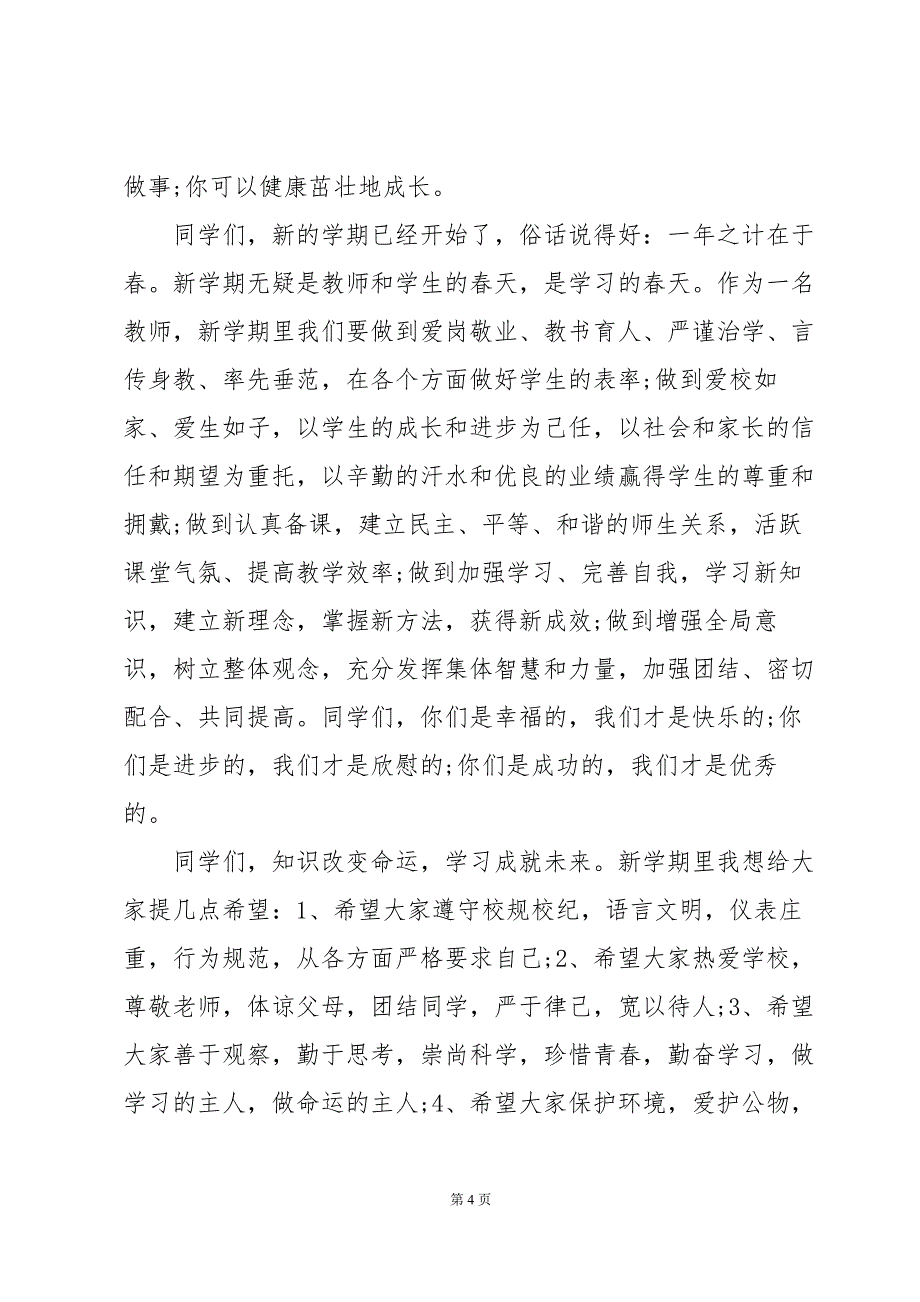 做事;你可以健康茁壮地成长。
同学们，新的学期已经开始了，俗话说得好：一年之计在于
春。新学期无疑是教师和学生的春天，是学习的春天。作为一名
教师，新学期里我们要做到爱岗敬业、教书育人、严谨治学、言
传身教、率先垂范，在各个方面做好学生的表率;做到爱校如
家、爱生如子，以学生的成长和进步为己任，以社会和家长的信
任和期望为重托，以辛勤的汗水和优良的业绩赢得学生的尊重和
拥戴;做到认真备课，建立民主、平等、和谐的师生关系，活跃
课堂气氛、提高教学效率;做到加强学习、完善自我，学习新知
识，建立新理念，掌握新方法，获得新成效;做到增强全局意
识，树立整体观念，充分发挥集体智慧和力量，加强团结、密切
配合、共同提高。同学们，你们是幸福的，我们才是快乐的;你
们是进步的，我们才是欣慰的;你们是成功的，我们才是优秀
的。
同学们，知识改变命运，学习成就未来。新学期里我想给大
家提几点希望：1、希望大家遵守校规校纪，语言文明，仪表庄
重，行为规范，从各方面严格要求自己;2、希望大家热爱学校，
尊敬老师，体谅父母，团结同学，严于律己，宽以待人;3、希望
大家善于观察，勤于思考，崇尚科学，珍惜青春，勤奋学习，做
学习的主人，做命运的主人;4、希望大家保护环境，爱护公物，
第 4 页